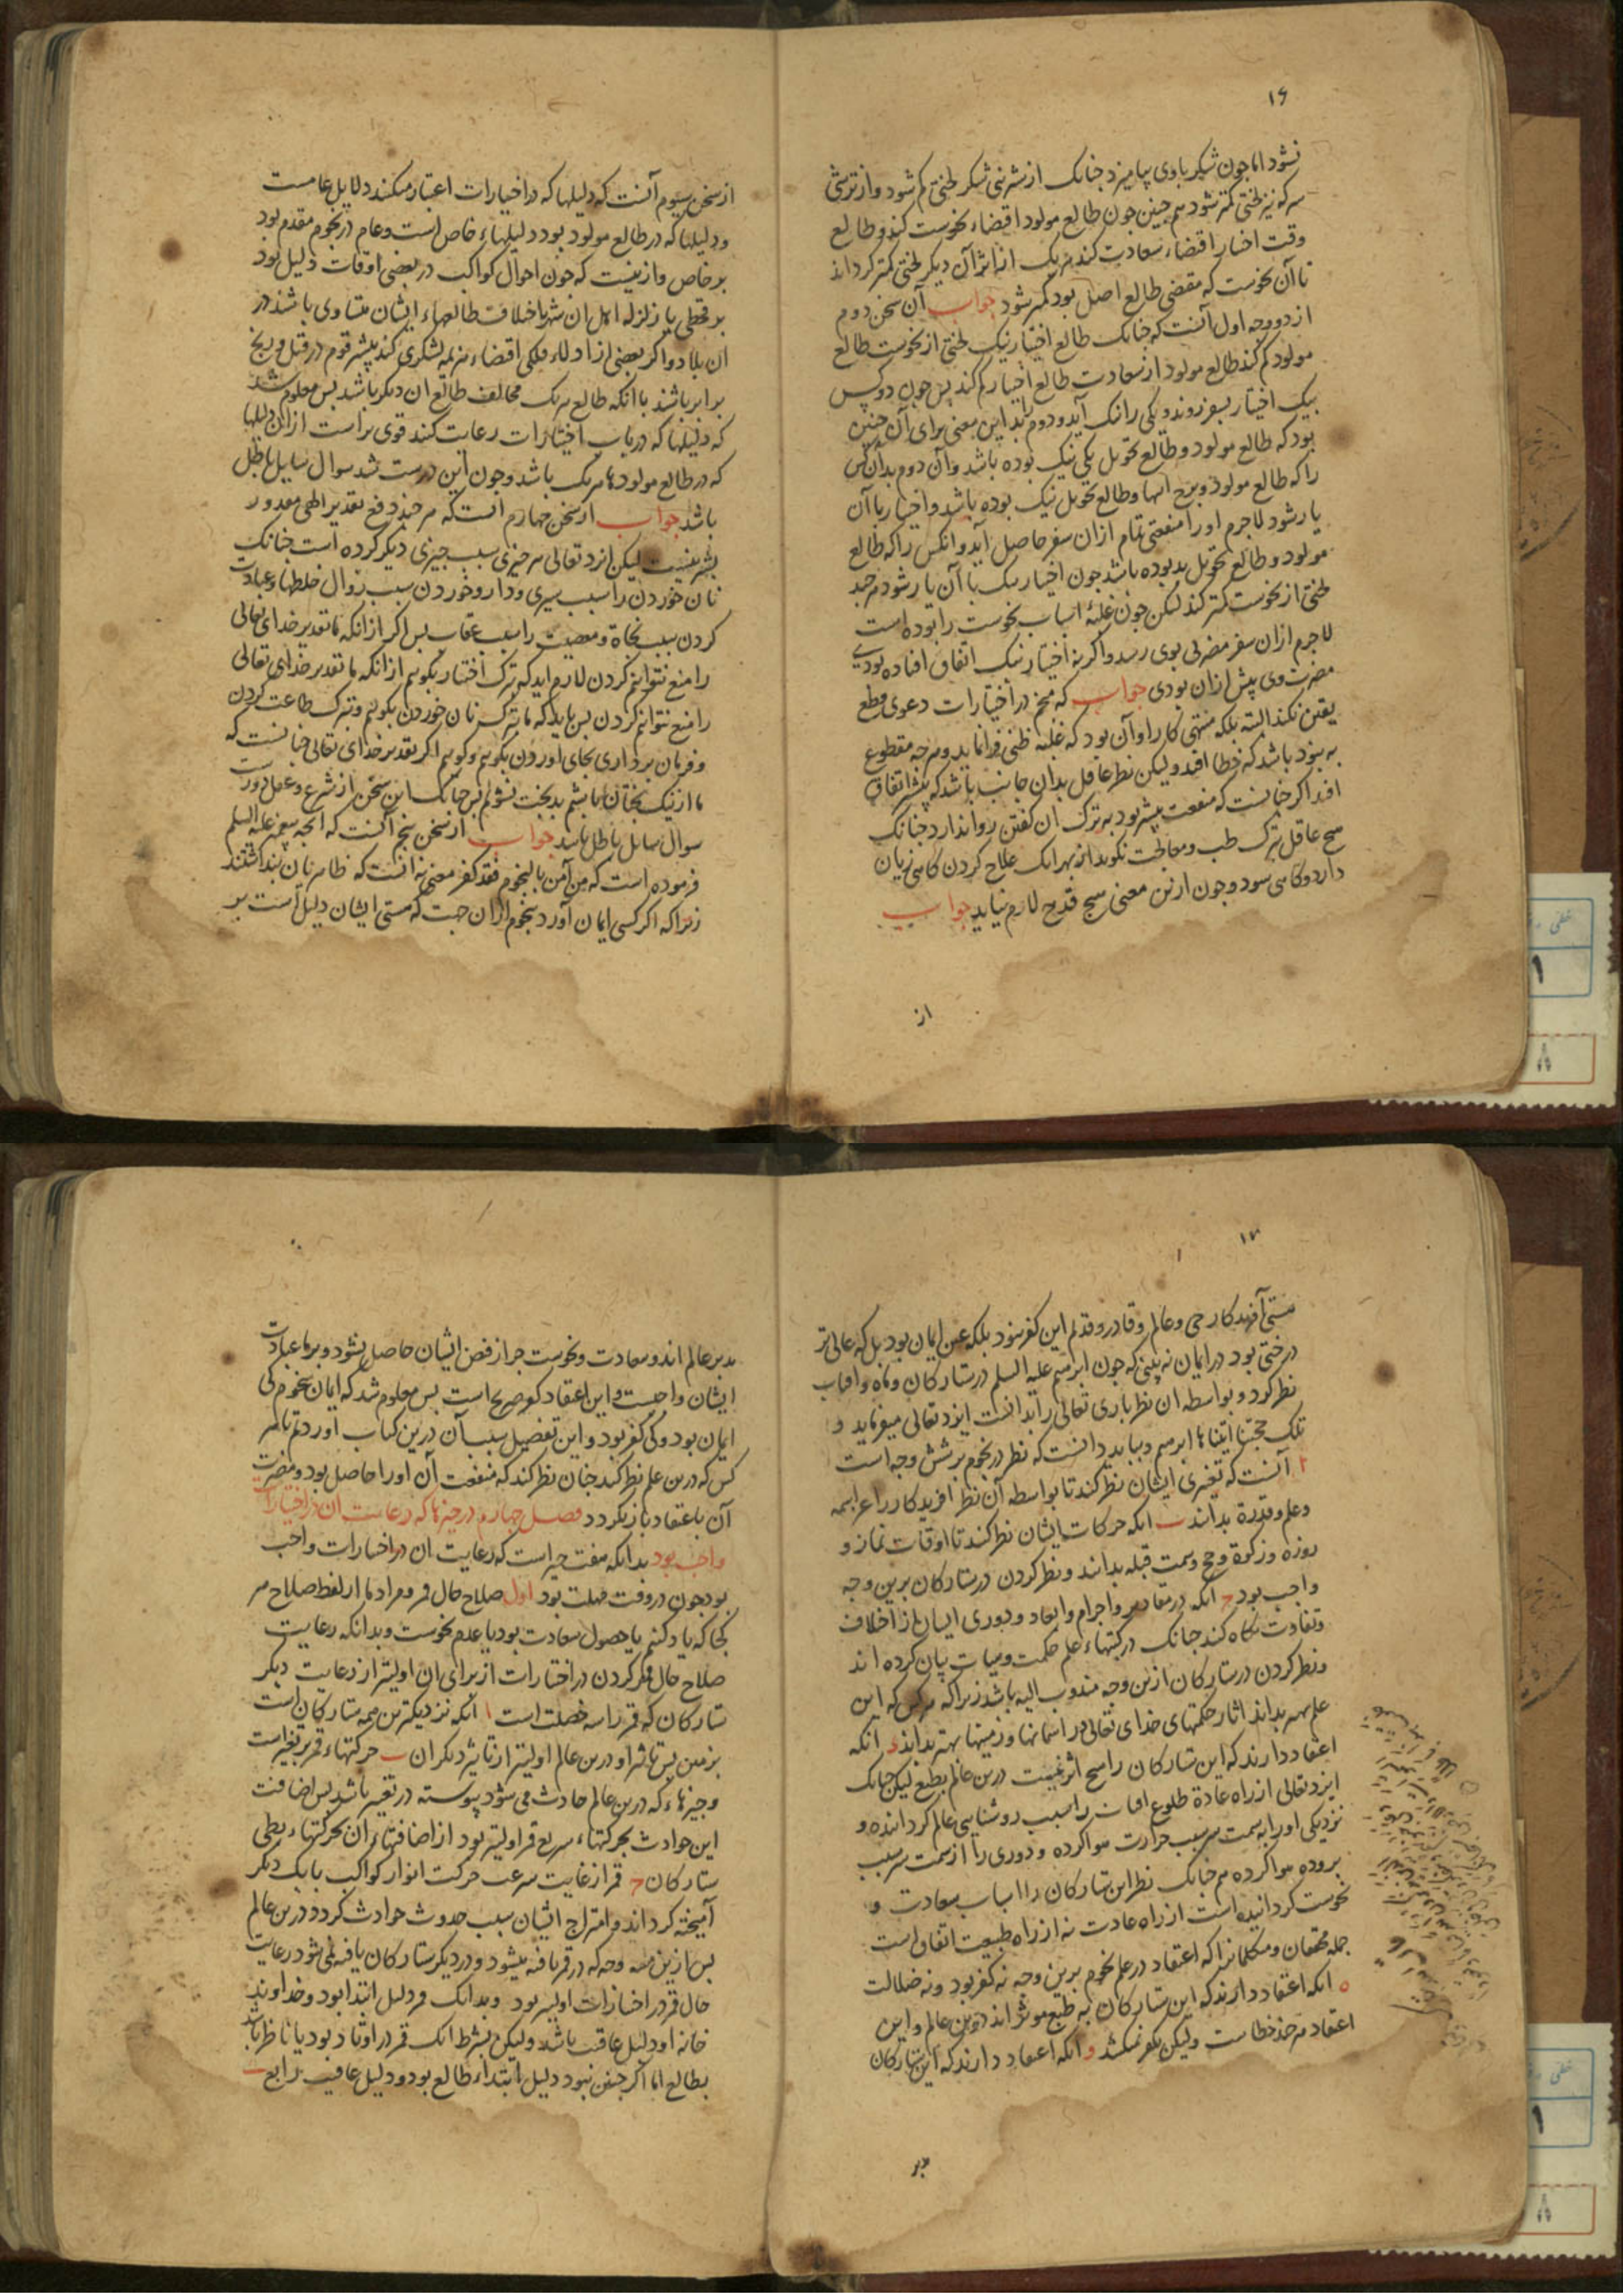 ۱۶
نشود اما جون شکر با وی بیامیزد جنانک از شیرینی شکر لختی کم شود و از ترشی
سرکه نیز لختی کمتر شود هم جنین جون طالع مولود اقتضاء نحوست کند و طالع
وقت اختیار اقتضاء سعادت کند هر یک از اثر آن دیگر لختی کمتر گرداند
تا آن نحوست که مقتضی طالع اصل بود کمتر شود جواب آن سخن دوم
از دو وجه اول آنست که جنانک طالع اختیار نیک لختی از نحوست طالع
مولود کم کند طالع مولود از سعادت طالع اختیار کم کند پس جون دو کس
بیک اختیار بسفر روند و یکی را نیک آید و دوم را بد این معنی برای آن جنین
بود که طالع مولود و طالع تحویل یکی نیک بوده باشد و آن دوم بد آن کس
را که طالع مولود و برج انتها و طالع تحویل نیک بوده باشد و اختیار با آن
یار شود لاجرم او را منفعتی تمام ازان سفر حاصل آید و آنکس را که طالع
مولود و طالع تحویل بد بوده باشد جون اختیار نیک با آن یار شود هر جند
لختی از نحوست کمتر کند لیکن جون غلبهٔ اسباب نحوست را بوده است
لاجرم ازان سفر مضرتی بوی رسد و اگر نه اختیار نیک اتفاق افتاده بودی
مضرت وی بیش ازان بودی جواب که منجم در اختیارات دعوی قطع
یقین نکند البته بلکه منتهی کار او آن بود که غلبه ظنی فرا نماید و هر جه مقطوع
به نبود باشد که خطا افتد و لیکن نظر عاقل بدان جانب باشد که بیشتر اتفاق
افتد اگر جنانست که منفعت بیشتر بود به ترک آن گفتن روا ندارد جنانک
هیچ عاقل بترک طب و معالجت نگوید از بهر آنک علاج کردن گاهی زیان
دارد و گاهی سود و جون ازین معنی هیچ قدح لازم نیاید جواب
از
از سخن سیوم آنست که دلیلها که در اختیارات اعتبار میکنند دلایل عامست
و دلیلها که در طالع مولود بود دلیلهاء خاص است و عام در نجوم مقدم بود
بر خاص و ازینست که جون احوال کواکب در بعضی اوقات دلیل بود
بر قحطی یا زلزله اهل ان شهر با خلاف طالعهاء ایشان متساوی باشند در
ان بلا و اگر بعضی از ادلاء فلکی اقتضاء هزیمه لشکری کند بیشتر قوم در قتل و رنج
برابر باشند با انکه طالع هر یک مخالف طالع ان دیگر باشد بس معلوم شد
که دلیلها که در باب اختیارات رعایت کنند قوی تر است از ان دلیلها
که در طالع مولود هر یک باشد و جون این درست شد سوال سایل باطل
باشد جواب از سخن جهارم آنست که هر جند دفع تقدیر الهی مقدور
بشر نیست لیکن ایزد تعالی هر جیزی سبب جیزی دیگر کرده است جنانک
نان خوردن را سبب سیری و دارو خوردن سبب زوال خلطها و عبادت
کردن سبب نجاة و معصیت را سبب عقاب بس اگر از انکه ما تقدیر خدای تعالی
را منع نتوانیم کردن لازم اید که ترک اختیار بگوییم از انکه ما تقدیر خدای تعالی
را منع نتوانیم کردن بس باید که ما ترک نان خوردن بگوییم و ترک طاعت کردن
و فرمان برداری بجای اوردن بگوییم و گوییم اگر تقدیر خدای تعالی جنانست که
ما از نیک بختان باشیم بدبخت نشویم بس جنانک این سخن از شرع و عقل دورست
سوال سایل باطل باشد جواب از سخن پنجم آنست که آنجه پیغمبر علیه السلم
فرموده است که من آمن بالنجوم فقد کفر معنی نه آنست که ظاهریان پنداشتند
زیرا که اگر کسی ایمان آورد بنجوم ازان جهت که هستی ایشان دلیل است بر
۱۷
هستی آفریدگار حی و عالم و قادر و قدیم این کفر نبود بلکه عین ایمان بود بل که عالی تر
درختی بود در ایمان نه بینی که جون ابرهیم علیه السلم در ستارگان و ماه و افتاب
نظر کرد و بواسطه ان نظر باری تعالی را بدانست ایزد تعالی میفرماید و
تلک حجتنا اتیناها ابرهیم و بباید دانست که نظر در نجوم بر شش وجه است
ا آنست که تغیری ایشان نظر کند تا بواسطه آن نظر افریدگار را عز اسمه
و علم و قدرة بدانند ب انکه حرکات ایشان نظر کند تا اوقات نماز و
روزه و زکوة و حج و سمت قبله بدانند و نظر کردن در ستارگان برین وجه
واجب بود ج انکه در مقادیر و اجرام و ابعاد و دوری ایشان از اختلاف
و تفاوت نگاه کند جنانک در کتبهاء علم حکمت و هیات بیان کرده اند
و نظر کردن در ستارگان ازین وجه مندوب الیه باشد زیرا که هر کس که این
علم بهتر بداند اثار حکمتهای خدای تعالی در اسمانها و زمینها بهتر بداند د انکه
اعتقاد دارند که این ستارگان را هیچ اثر نیست درین عالم بطبع لیکن جنانک
ایزد تعالی از راه عادة طلوع افتاب را سبب روشنایی عالم گردانیده و
نزدیکی او را بسمت سر سبب حرارت هوا کرده و دوری را از سمت سر سبب
بروده هوا کرده هم جنانک نظر این ستارگان را اسباب سعادت و
نحوست گردانیده است از راه عادت نه از راه طبیعت اتفاق است
جمله محققان و متکلمانرا که اعتقاد در علم نجوم برین وجه نه کفر بود و نه ضلالت
ه انکه اعتقاد دارند که این ستارگان به طبع موثر اند درین عالم و این
اعتقاد هر جند خطاست ولیکن بکفر نمیکشد و انکه اعتقاد دارند که این ستارگان
مدبر
مدبر عالم اند و سعادت و نحوست جز از فیض ایشان حاصل نشود و بر ما عبادت
ایشان واجبست و این اعتقاد کفر صریح است بس معلوم شد که ایمان بنجوم کی
ایمان بود و کی کفر بود و این تفصیل بسبب آن درین کتاب اوردیم تا هر
کس که درین علم نظر کند جنان نظر کند که منفعت آن او را حاصل بود و مضرت
آن باعتقاد باز نگردد فصل جهارم در جیزها که رعایت ان در اختیارات
واجب بود بدانکه هفت جیز است که رعایت ان در اختیارات واجب
بود جون در وقت مهلت بود اول صلاح حال قمر و مراد ما از لفظ صلاح هر
کجا که یاد کنیم یا حصول سعادت بود یا عدم نحوست و بدانکه رعایت
صلاح حال قمر کردن در اختیارات از برای ان اولیتر از رعایت دیگر
ستارگان که قمر را سه خصلت است ا انکه نزدیکترین همه ستارگان است
بزمین بس تاثیر او درین عالم اولیتر از تاثیر دیگران ب حرکتهاء قمر بر تغیر است
و جیزهاء که درین عالم حادث می شود پیوسته در تغیر باشد بس اضافت
این حوادث بحرکتهاء سریع قمر اولیتر بود از اضافتهاء آن بحرکتهاء بطی
ستارگان ج قمر از غایت سرعت حرکت انوار کواکب با یک دیگر
آمیخته گرداند و امتزاج ایشان سبب حدوث حوادث گردد درین عالم
بس ازین سه وجه که در قمر یافته میشود و در دیگر ستارگان یافته نمی شود رعایت
حال قمر در اختیارات اولیتر بود و بدانک قمر دلیل ابتدا بود و خداوند
خانه او دلیل عاقبت باشد ولیکن بشرط آنک قمر در اوتاد بود یا ناظر باشد
بطالع اما اگر جنین نبود دلیل ابتداء طالع بود و دلیل عاقبت رابع ب